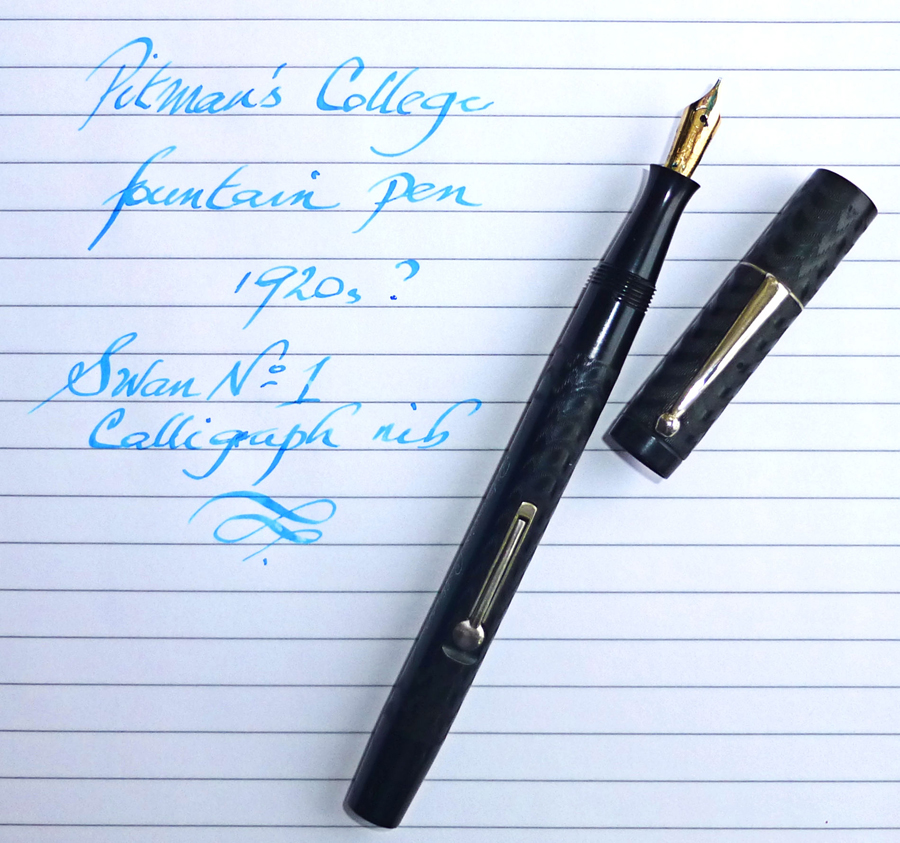 Pitman's College
fountain pen
1920s ?
Swan Nº 1
Calligraph nib